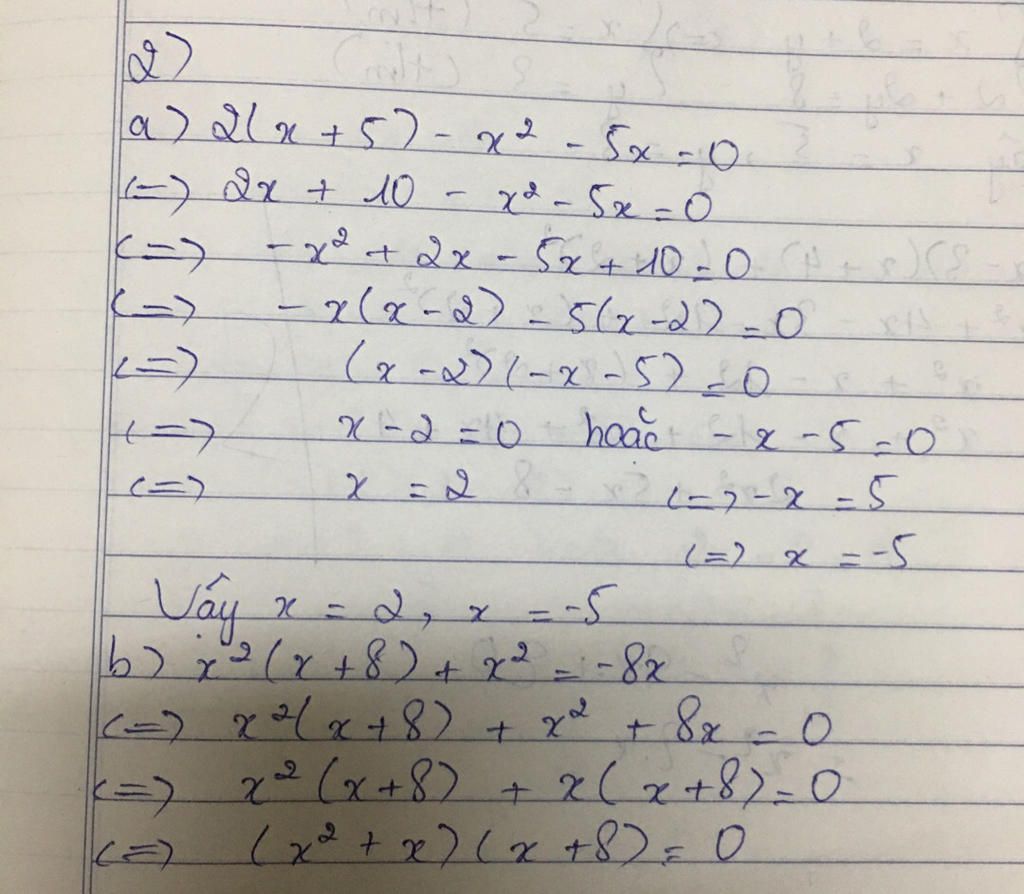 2)
a) 2(x + 5) - x² - 5x = 0
<=> 2x + 10 - x² - 5x = 0
<=> -x² + 2x - 5x + 10 = 0
<=> -x(x - 2) - 5(x - 2) = 0
<=> (x - 2)(-x - 5) = 0
<=> x - 2 = 0 hoặc -x - 5 = 0
<=> x = 2 <=> -x = 5
<=> x = -5
Vậy x = 2, x = -5
b) x²(x + 8) + x² = -8x
<=> x²(x + 8) + x² + 8x = 0
<=> x²(x + 8) + x(x + 8) = 0
<=> (x² + x)(x + 8) = 0